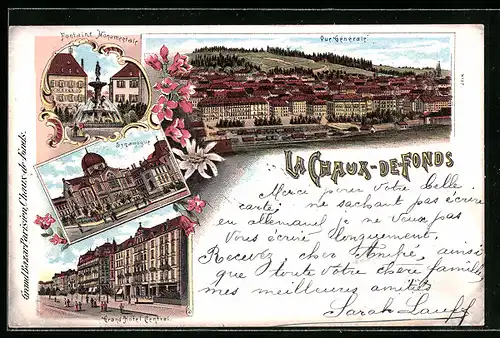 Fontaine Monumentale
Vue Générale
Synagogue
LA CHAUX-DE-FONDS
Grand Bazar Parisien Chaux-de-Fonds.
Merci pour votre belle
carte, ne sachant pas écrire
en allemand je ne veux pas
vous écrire longuement.
Recevez cher André, ainsi
que toute votre chère famille
mes meilleures amitiés
Sarah Lauff
Grand Hôtel Central.